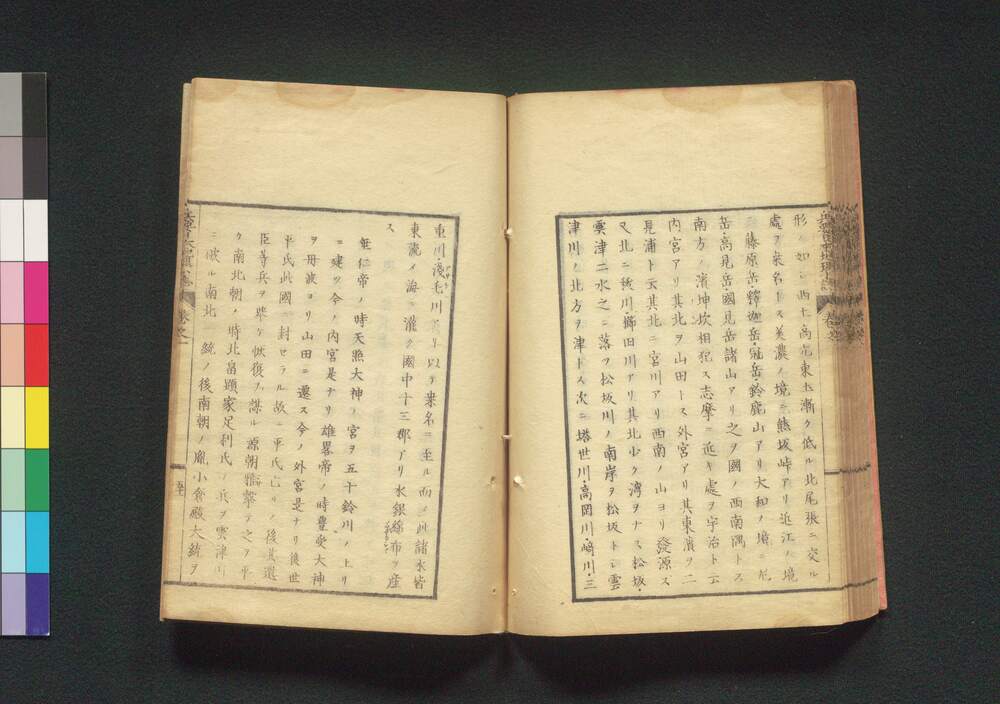 形ノ如シ西ハ高亢東ハ漸ク低ル北尾張ニ交ル
處ヲ桒名トス美濃ノ境ニ熊坂峠アリ近江ノ境
ニ藤原岳・釋迦岳・冠岳・鈴鹿山アリ大和ノ境ニ
岳・高見岳國見岳諸山アリ之ヲ國ノ西南隅トス
南方ノ濱坤坎相犯ス志摩ニ近キ處ヲ宇治ト云
内宮アリ其北ヲ山田トス外宮アリ其東濱ヲ二
見浦ト云其北ニ宮川アリ西南ノ山ヨリ發源ス
又北ニ祓川・櫛田川アリ其北少ク灣ヲナス松坂・
雲津二水之ニ落ツ松坂川ノ南岸ヲ松坂トシ雲
津川ノ北方ヲ津トス次ニ塔世川・高岡川・﨑川・三
重川・浅毛川アリ以テ桒名ニ至ル而シ此諸水皆
東流ノ海ニ灌ク國中十三郡アリ水銀絲布ヲ産
ス
垂仁帝ノ時天照大神ノ宮ヲ五十鈴川ノ上リ
ニ建ツ今ノ内宮是ナリ雄畧帝ノ時豊受大神
ヲ丹波ヨリ山田ニ遷ス今ノ外宮是ナリ後世
平氏此國ニ封セラル故ニ平氏亡ルノ後其遺
臣等兵ヲ挙ケ恢復ヲ謀ル源朝臨撃テ之ヲ平
ク南北朝ノ時北畠顕家足利氏ノ兵ヲ雲津川
ニ敗ル南北一統ノ後南朝ノ胤小倉殿大統ヲ